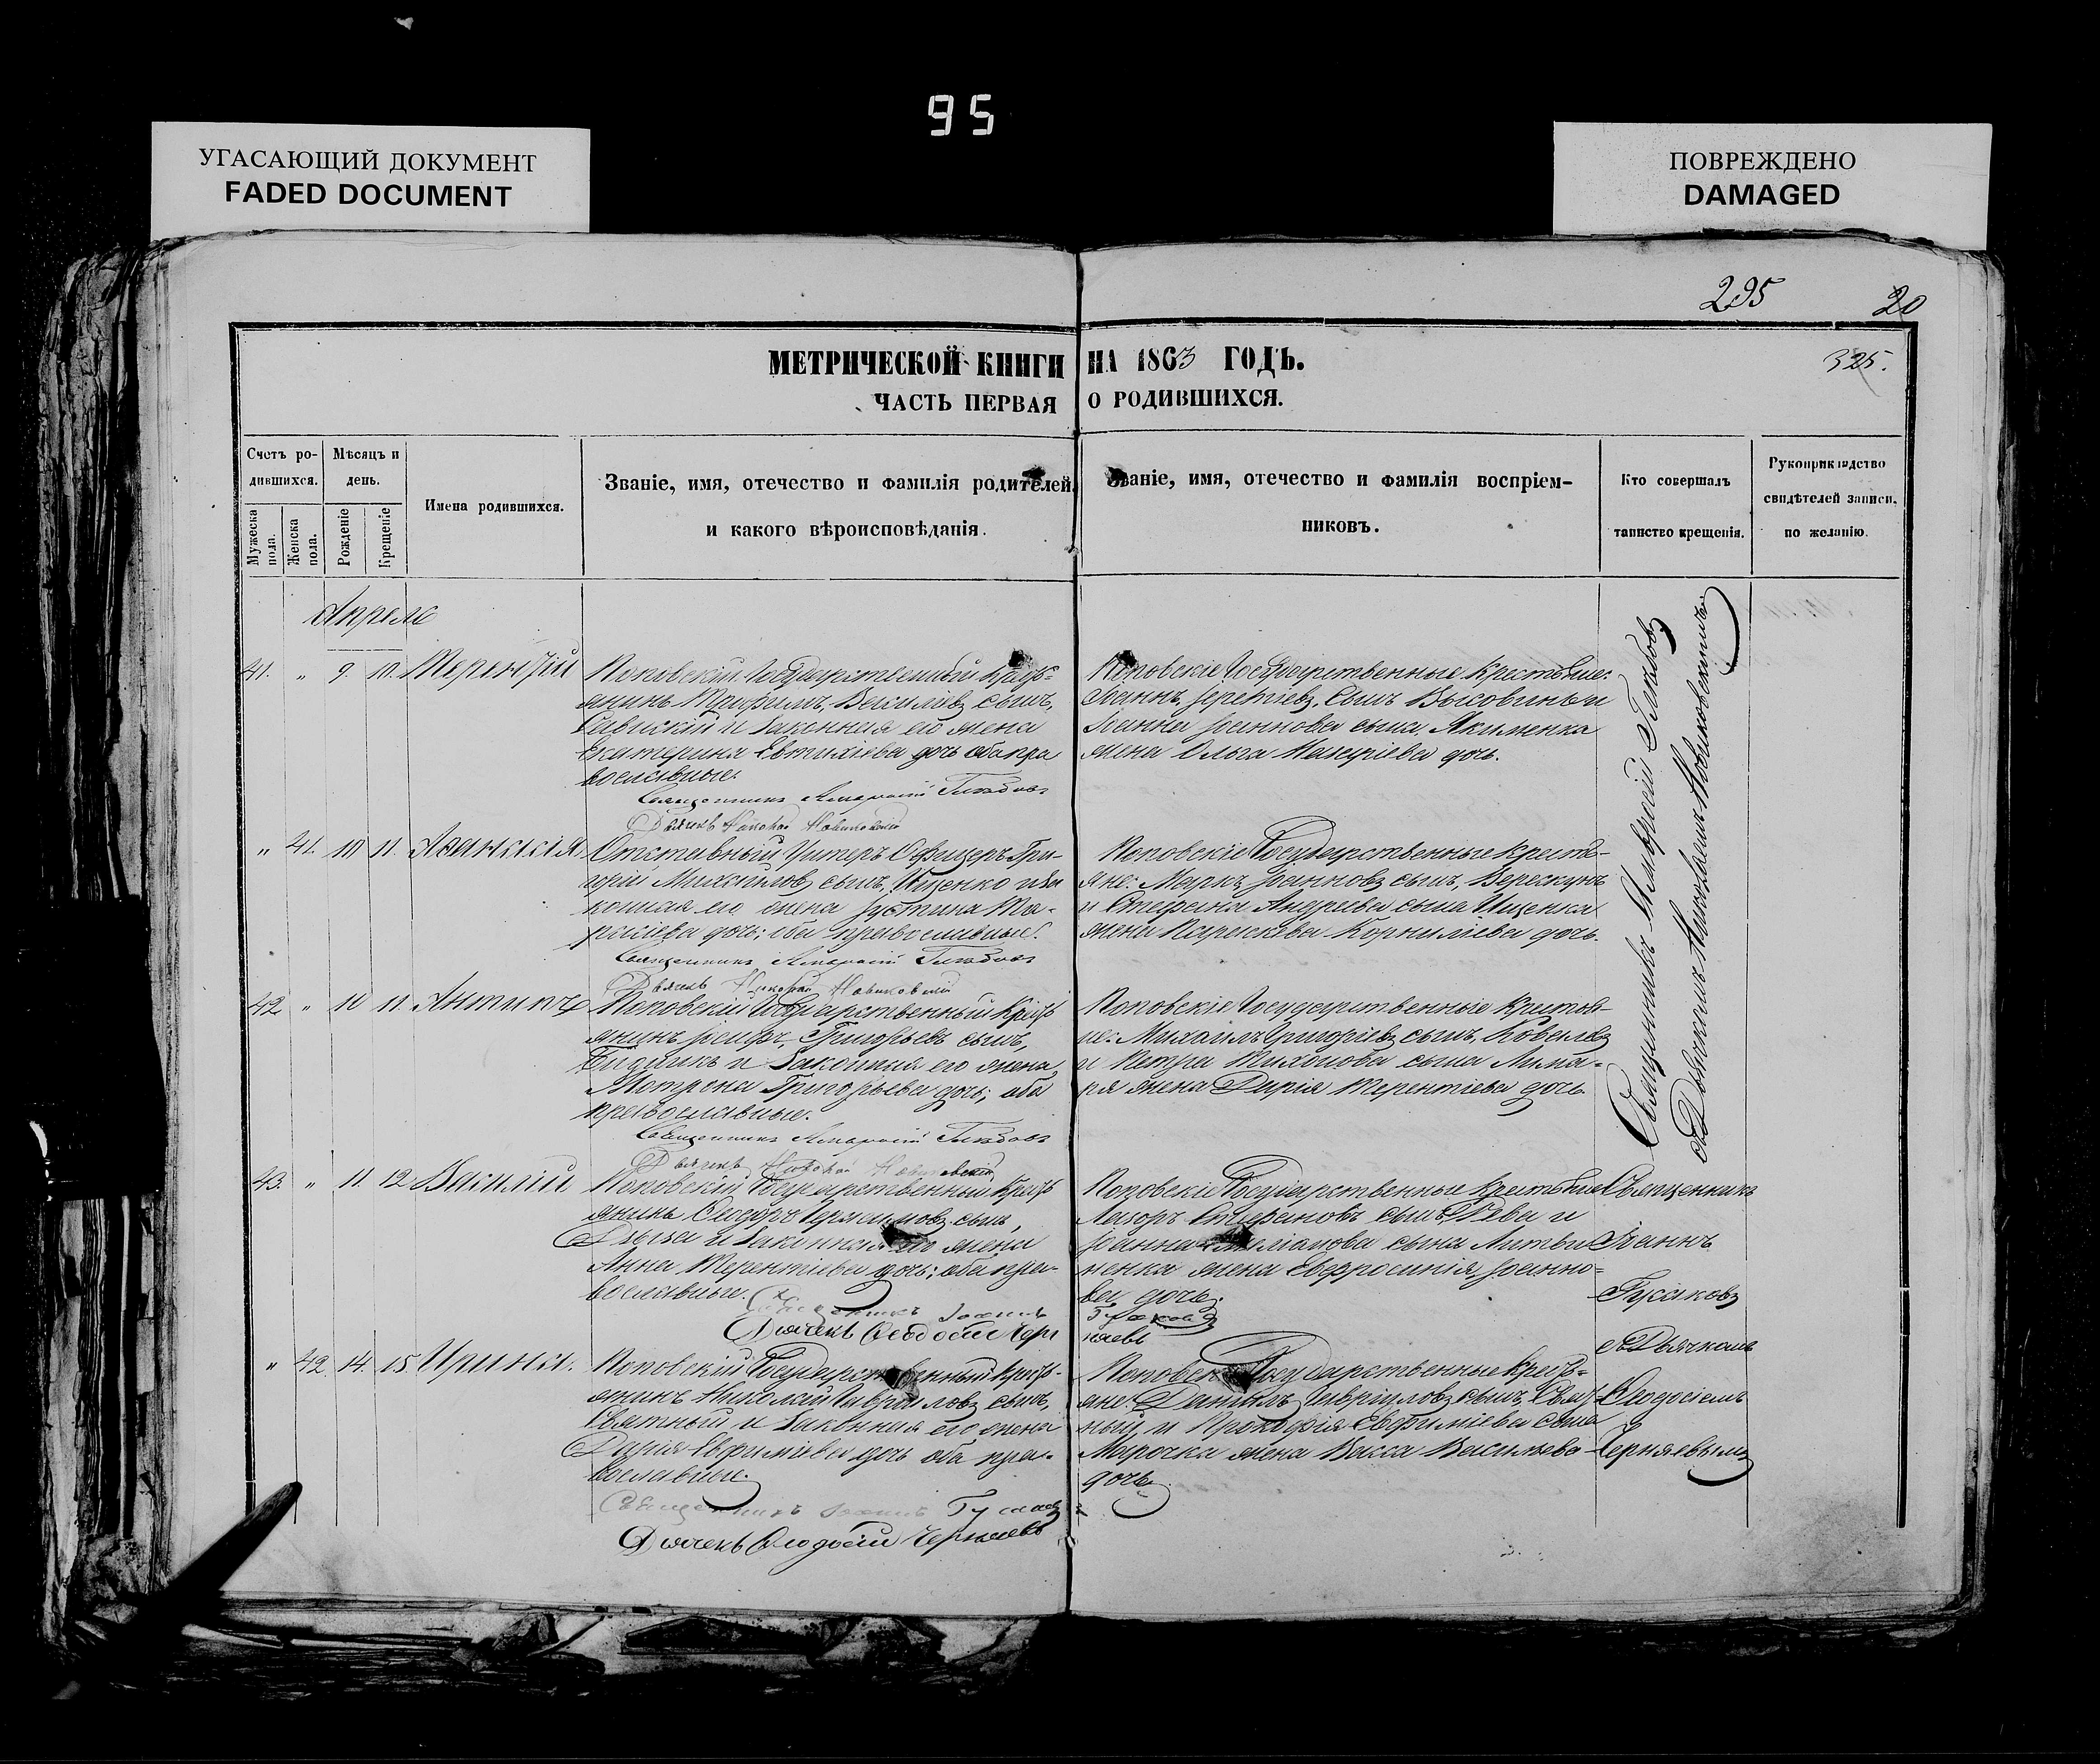 95
УГАСАЮЩИЙ ДОКУМЕНТ
FADED DOCUMENT
ПОВРЕЖДЕНО
DAMAGED
295
20
325.
МЕТРИЧЕСКОЙ КНИГИ НА 1863 ГОДЪ.
ЧАСТЬ ПЕРВАЯ О РОДИВШИХСЯ.
Счетъ родившихся.
Мужеска пола.
Женска пола.
Мѣсяцъ и день.
Рожденіе
Крещеніе
Имена родившихся.
Званіе, имя, отечество и фамилія родителей,
и какого вѣроисповѣданія.
Званіе, имя, отечество и фамилія воспріем-
никовъ.
Кто совершалъ
таинство крещенія.
Рукоприкладство
свидѣтелей записи,
по желанію.
Апрель
41. " 9. 10. Терентій
Поповскій Государственный Кресть-
янинъ Трифилъ, Василіевъ сынъ,
и Законная его жена
Екатерина Евтихіева дочь оба пра
вославные.
Священникъ Амвросій Глѣбовъ
Дьячекъ Николай Новиковскій
Поповскіе Государственные Крестьяне:
Іоаннъ, сынъ и
Іоанна Іоаннова сына, Якименка
жена Ольга дочь.
" 41. 10 11.
Отставный Унтеръ Офицеръ Гри-
горій Михаиловъ сынъ, Ищенко и за
конная его жена Іустина Та-
расіева дочь; оба православные.
Священникъ Амвросій Глѣбовъ
Дьячекъ Николай Новиковскій
Поповскіе Государственные кресть-
яне: Маркъ Іоанновъ сынъ,
и Стефана Андреева сына Ищенка
жена Параскева Корнилiева дочь.
42 " 10 11. Антипъ
Поповскій Государственный Кресть
янинъ Іосифъ, Григорьевъ сынъ,
и Законная его жена
Матрона Григорьева дочь; оба
православные.
Священникъ Амвросій Глѣбовъ
Дьячекъ Николай Новиковскій
Поповскіе Государственные крестья-
не: Михаилъ Григоріевъ сынъ,
и Петра Тихонова сына Лима-
ря жена Дарія Терентіева дочь
Священникъ Амвросій Глѣбовъ
съ Дьячкомъ Николаемъ Новиковскимъ
43. " 11. 12 Василій
Поповскій Государственный Кресть
янинъ Ѳеодоръ Герасимовъ сынъ,
и Законная его жена
Анна Терентіева дочь; оба пра-
вославные.
Священникъ Іоаннъ Гусаковъ
Дьячекъ Ѳеодосій Черняевъ
Поповскіе Государственные крестьяне
Лазарь Стефановъ сынъ, и
Іоанна сына Литви
ненка жена Евфросинія Іоанно-
ва дочь.
Священникъ
Іоаннъ
Гусаковъ
съ Дьячкомъ
Ѳеодосіемъ
Черняевымъ
" 42. 14. 15. Ирина.
Поповскій Государственный кресть-
янинъ Николай Гавріиловъ сынъ,
Святный и Законная его жена
Дарія Евфиміева дочь оба пра-
вославные.
Священникъ Іоаннъ Гусаковъ
Дьячекъ Ѳеодосій Черняевъ
Государственные кресть-
яне: Даніилъ Гавріиловъ сынъ, Свят-
ный, и Прокофія Евфиміева сына
Марочка жена Васса Васильева
дочь.